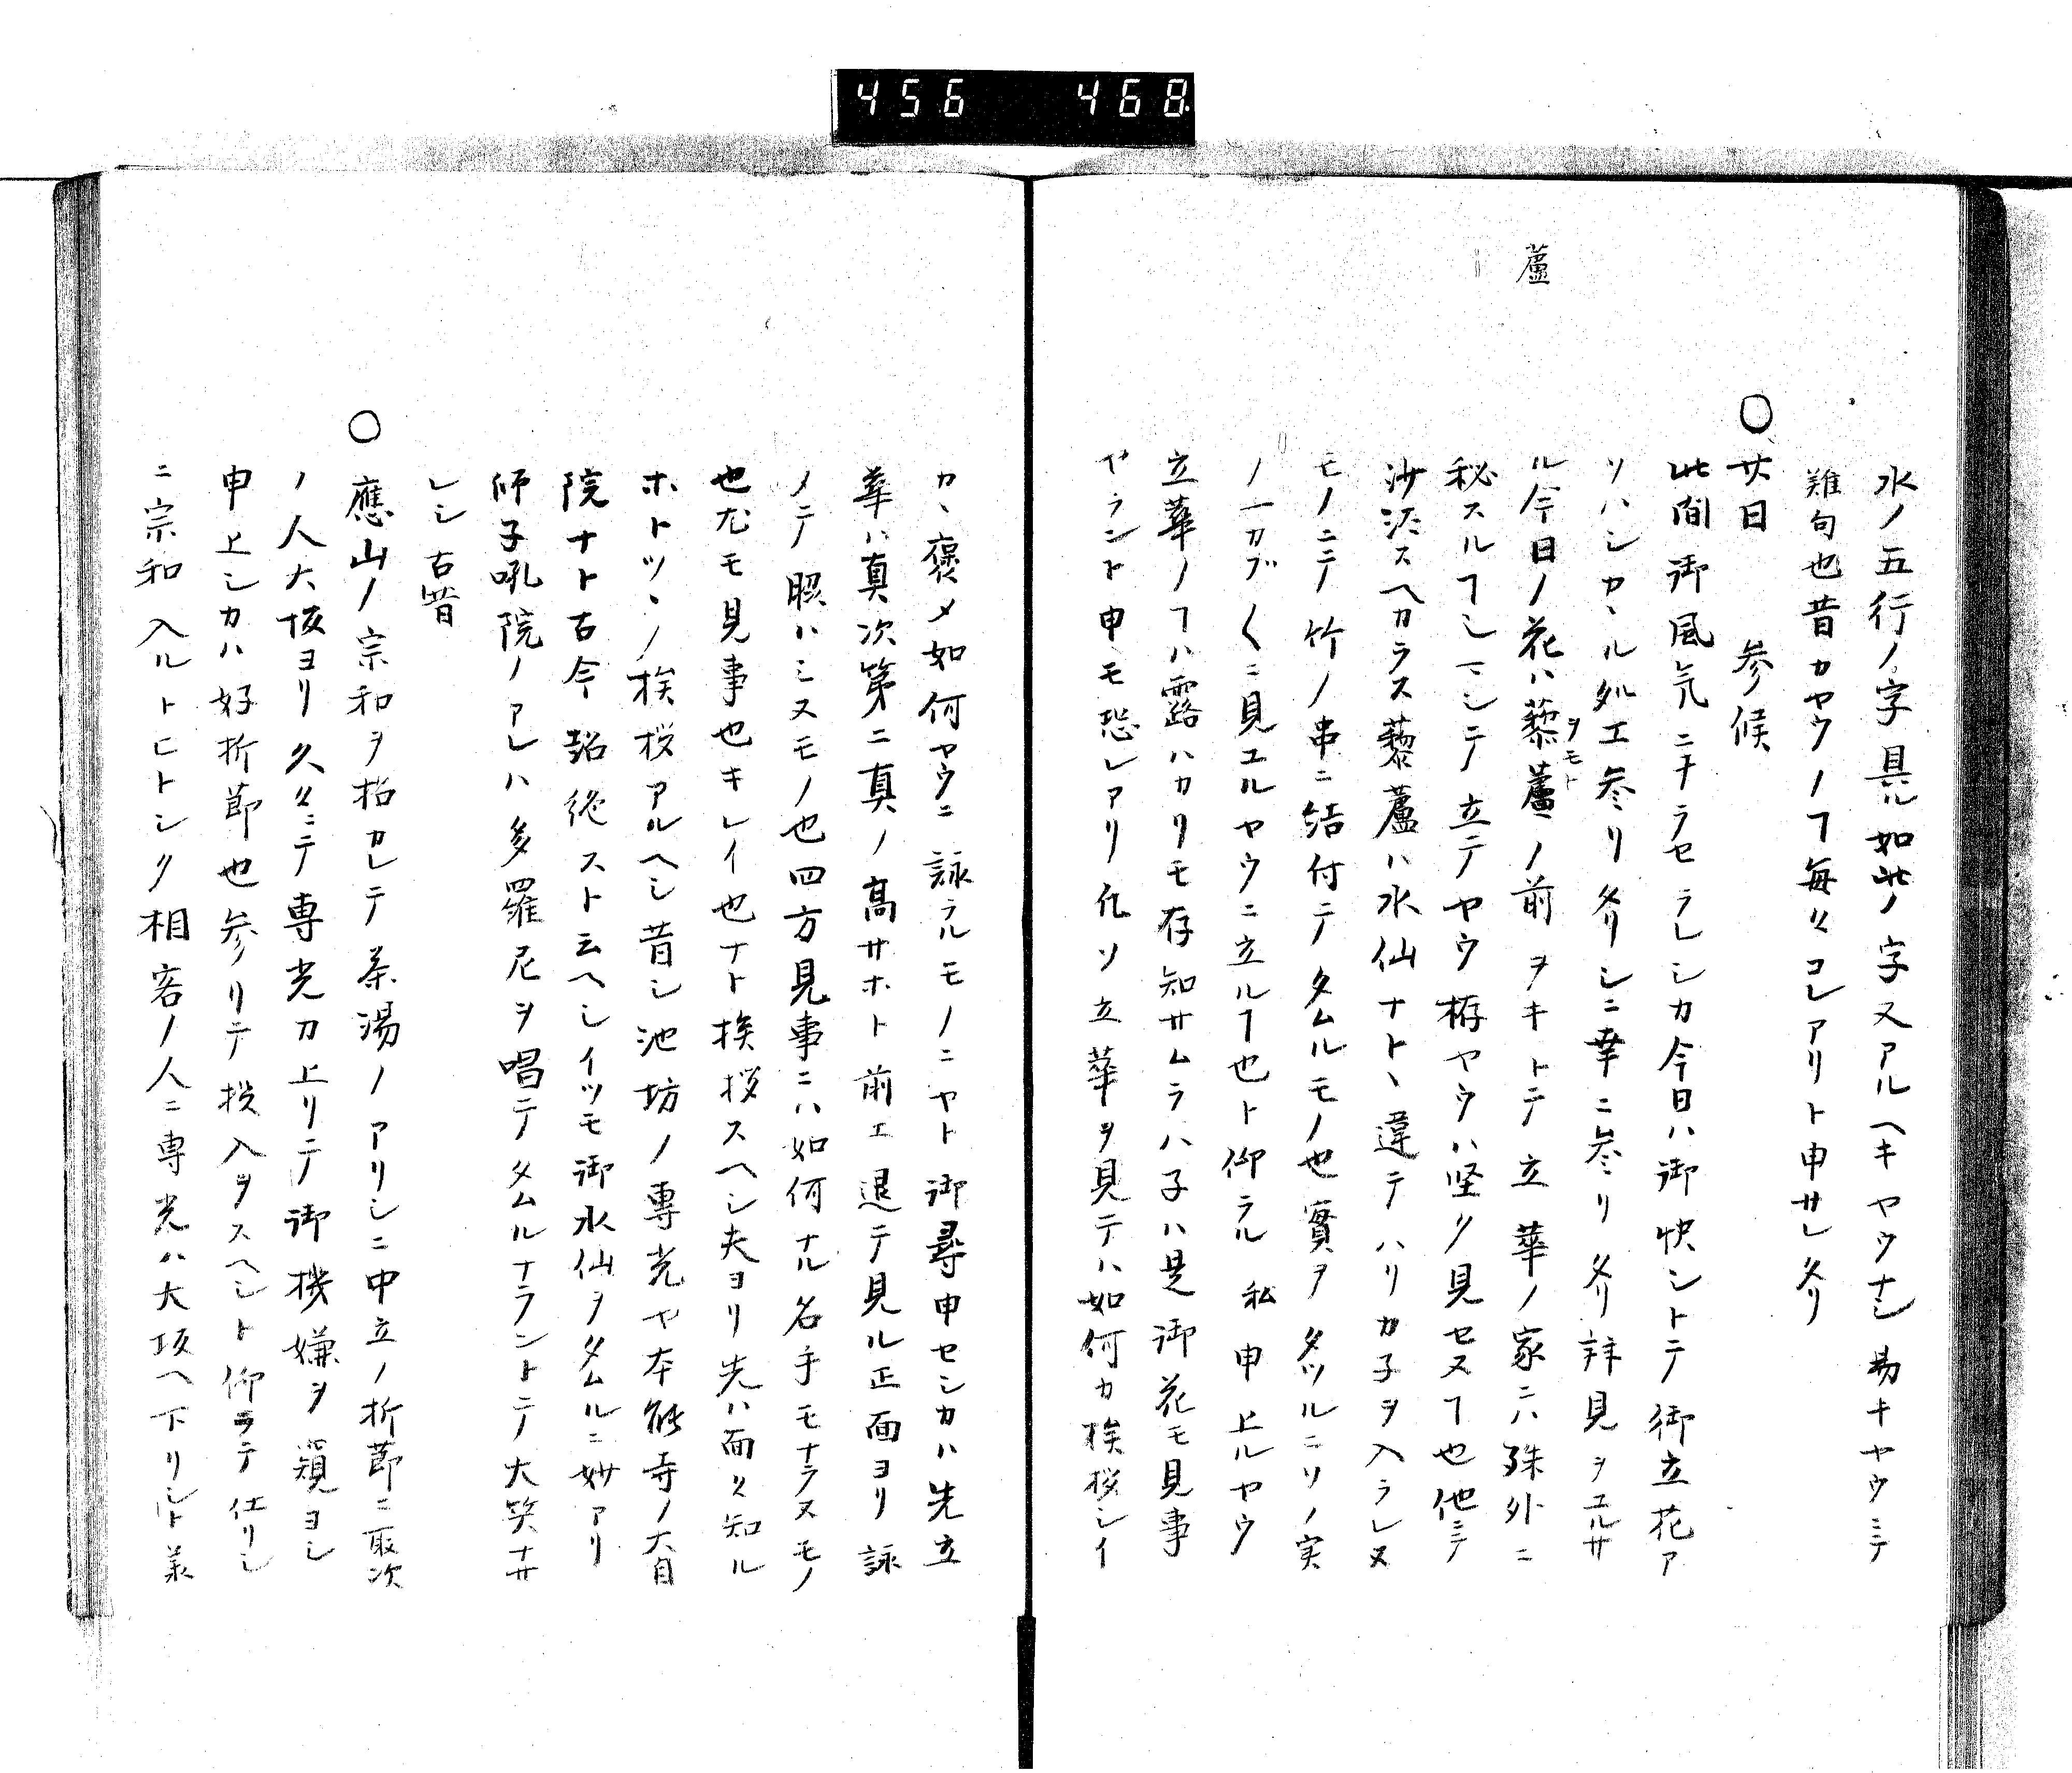 456 468
水ノ五行ノ字具ル如此ノ字又アルヘキヤウナシ易キヤウニテ
難句也昔カヤウノヿ毎々コレアリト申サレタリ
〇廿日 参候
此間御風気ニヰラセラレシカ今日ハ御快シトテ御立花ア
ソハシカヽル処エ参リタリシニ幸ニ参リタリ拝見ヲユルサ
ル今日ノ花ハ藜蘆ノ前ヲキトテ立華ノ家ニハ殊外ニ
ヲモト
蘆
秘スルヿシマシテ立テヤウ栫ヤウハ堅ク見セヌヿ也他ニテ
沙汰スヘカラス藜蘆ハ水仙ナトヽ違テハリカ子ヲ入ラレヌ
モノニテ竹ノ串ニ結付テタムルモノ也實ヲタツルニソノ実
ノ一カブ〱ニ見ユルヤウニ立ルヿ也ト仰ラル 私申上ルヤウ
立華ノヿハ露ハカリモ存知サムラハ子ハ是御花モ見事
ヤラント申モ恐レアリ凡ソ立華ヲ見テハ如何カ挨拶シイ
カヽ褒メ如何ヤウニ詠ラルモノニヤト御尋申セシカハ先立
華ハ真次第ニ真ノ高サホト前エ退テ見ル正面ヨリ詠
ノテ暇ハミヌモノ也四方見事ニハ如何ナル名手モナラヌモノ
也尤モ見事也キレイ也ナト挨拶スヘシ夫ヨリ先ハ面々知ル
ホトツヽノ挨拶アルヘシ昔シ池坊ノ専光ヤ本能寺ノ大自
院ナト古今銘絶スト云ヘシイツモ御水仙ヲタムルニ妙アリ
師子吼院ノアレハ多羅尼ヲ唱テタムルナラントテ大笑ナサ
レシ古昔
〇應山ノ宗和ヲ招カレテ茶湯ノアリシニ中立ノ折節ニ取次
ノ人大坂ヨリ久々ニテ専光カ上リテ御機嫌ヲ窺ヨシ
申上シカハ好折節也参リテ投入ヲスヘシト仰ラテ仕リシ
ニ宗和入ルトヒトシク相客ノ人ニ専光ハ大坂ヘ下リシト兼